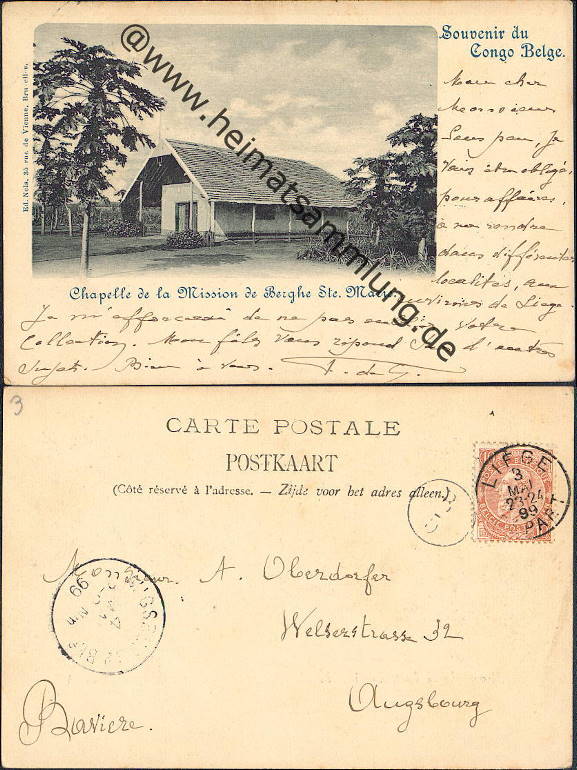 Souvenir du
Congo Belge.
Ed. Nels, 25 rue de Vienne, Bruxelles.
@www.heimatsammlung.de
Mon cher
Monsieur
Sous peu je
vais être obligé,
pour affaires,
à me rendre
dans différentes
localités, aux
environs de Liège.
Chapelle de la Mission de Berghe Ste. Marie
Je m'efforcerai de ne pas votre
collection. Mon fils vous répond d'autres
sujets. Bien à vous.
3
CARTE POSTALE
POSTKAART
(Côté réservé à l'adresse. — Zijde voor het adres alleen.)
LIÉGE
3
MAI
23-24
99
DÉPART
5
99
Monsieur A. Oberdorfer
Welserstrasse 32
Augsbourg
Bavière.